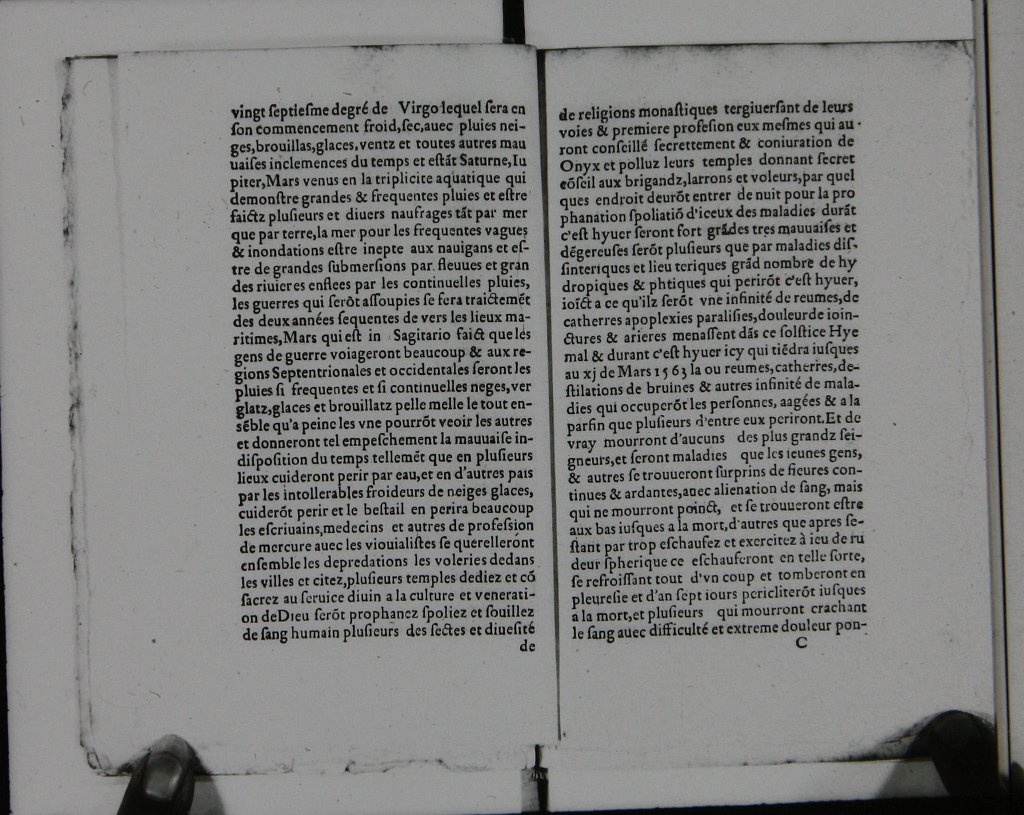 vingt ſeptieſme degré de Virgo lequel ſera en
ſon commencement froid,ſec,auec pluies nei-
ges,brouillas,glaces,ventz et toutes autres mau
uaiſes inclemences du temps et eſtãt Saturne,Iu
piter,Mars venus en la triplicite aquatique qui
demonſtre grandes & frequentes pluies et eſtre
faictz pluſieurs et diuers naufrages tãt par mer
que par terre,la mer pour les frequentes vagues
& inondations eſtre inepte aux nauigans et eſ-
tre de grandes ſubmerſions par fleuues et gran
des riuieres enflees par les continuelles pluies,
les guerres qui ſerõt aſſoupies ſe fera traictemẽt
des deux années ſequentes de vers les lieux ma-
ritimes,Mars qui eſt in Sagitario faict que les
gens de guerre voiageront beaucoup & aux re-
gions Septentrionales et occidentales ſeront les
pluies ſi frequentes et ſi continuelles neges,ver
glatz,glaces et brouillatz pelle melle le tout en-
sẽble qu'a peine les vne pourrõt veoir les autres
et donneront tel empeſchement la mauuaiſe in-
diſpoſition du temps tellemẽt que en pluſieurs
lieux cuideront perir par eau,et en d'autres pais
par les intollerables froideurs de neiges glaces,
cuiderõt perir et le beſtail en perira beaucoup
les eſcriuains,medecins et autres de profeſsion
de mercure auec les viouialiſtes ſe querellerõt
enſemble les depredations les voleries dedans
les villes et citez,pluſieurs temples dediez et cõ
ſacrez au ſeruice diuin a la culture et venerati-
on deDieu ſerõt prophanez ſpoliez et ſouillez
de ſang humain pluſieurs des ſectes et diueſité
de
de religions monaſtiques tergiuerſant de leurs
voies & premiere profeſion eux meſmes qui au
ront conſeillé ſecrettement & coniuration de
Onyx et polluz leurs temples donnant ſecret
cõſeil aux brigandz,larrons et voleurs,par quel
ques endroit deurõt entrer de nuit pour la pro
phanation ſpoliatiõ d'iceux des maladies durãt
c'eſt hyuer ſeront fort grãdes tres mauuaiſes et
dẽgereuſes ſerõt pluſieurs que par maladies diſ-
ſinteriques et lieu teriques grãd nombre de hy
dropiques & phtiques qui perirõt c'eſt hyuer,
ioict a ce qu'ilz ſerõt vne infinité de reumes,de
catherres apoplexies paraliſies,douleurde ioin-
ctures & arieres menaſſent dãs ce ſolſtice Hye
mal & durant c'eſt hyuer icy qui tiẽdra iuſques
au xj de Mars 1563 la ou reumes,catherres,de-
ſtilations de bruines & autres infinité de mala-
dies qui occuperõt les perſonnes, aagées & a la
parfin que pluſieurs d'entre eux periront.Et de
vray mourront d'aucuns des plus grandz ſei-
gneurs,et ſeront maladies que les ieunes gens,
& autres ſe trouueront ſurprins de fieures con-
tinues & ardantes,auec alienation de ſang, mais
qui ne mourront poinct, et ſe trouueront eſtre
aux bas iuſques a la mort,d'autres que apres ſe-
ſtant par trop eſchaufez et exercitez à ieu de ru
deur ſpherique ce eſchauferont en telle ſorte,
ſe refroiſſant tout d'vn coup et tomberont en
pleureſie et d'an ſept iours pericliterõt iuſques
a la mort,et pluſieurs qui mourront crachant
le ſang auec difficulté et extreme douleur pon-
C